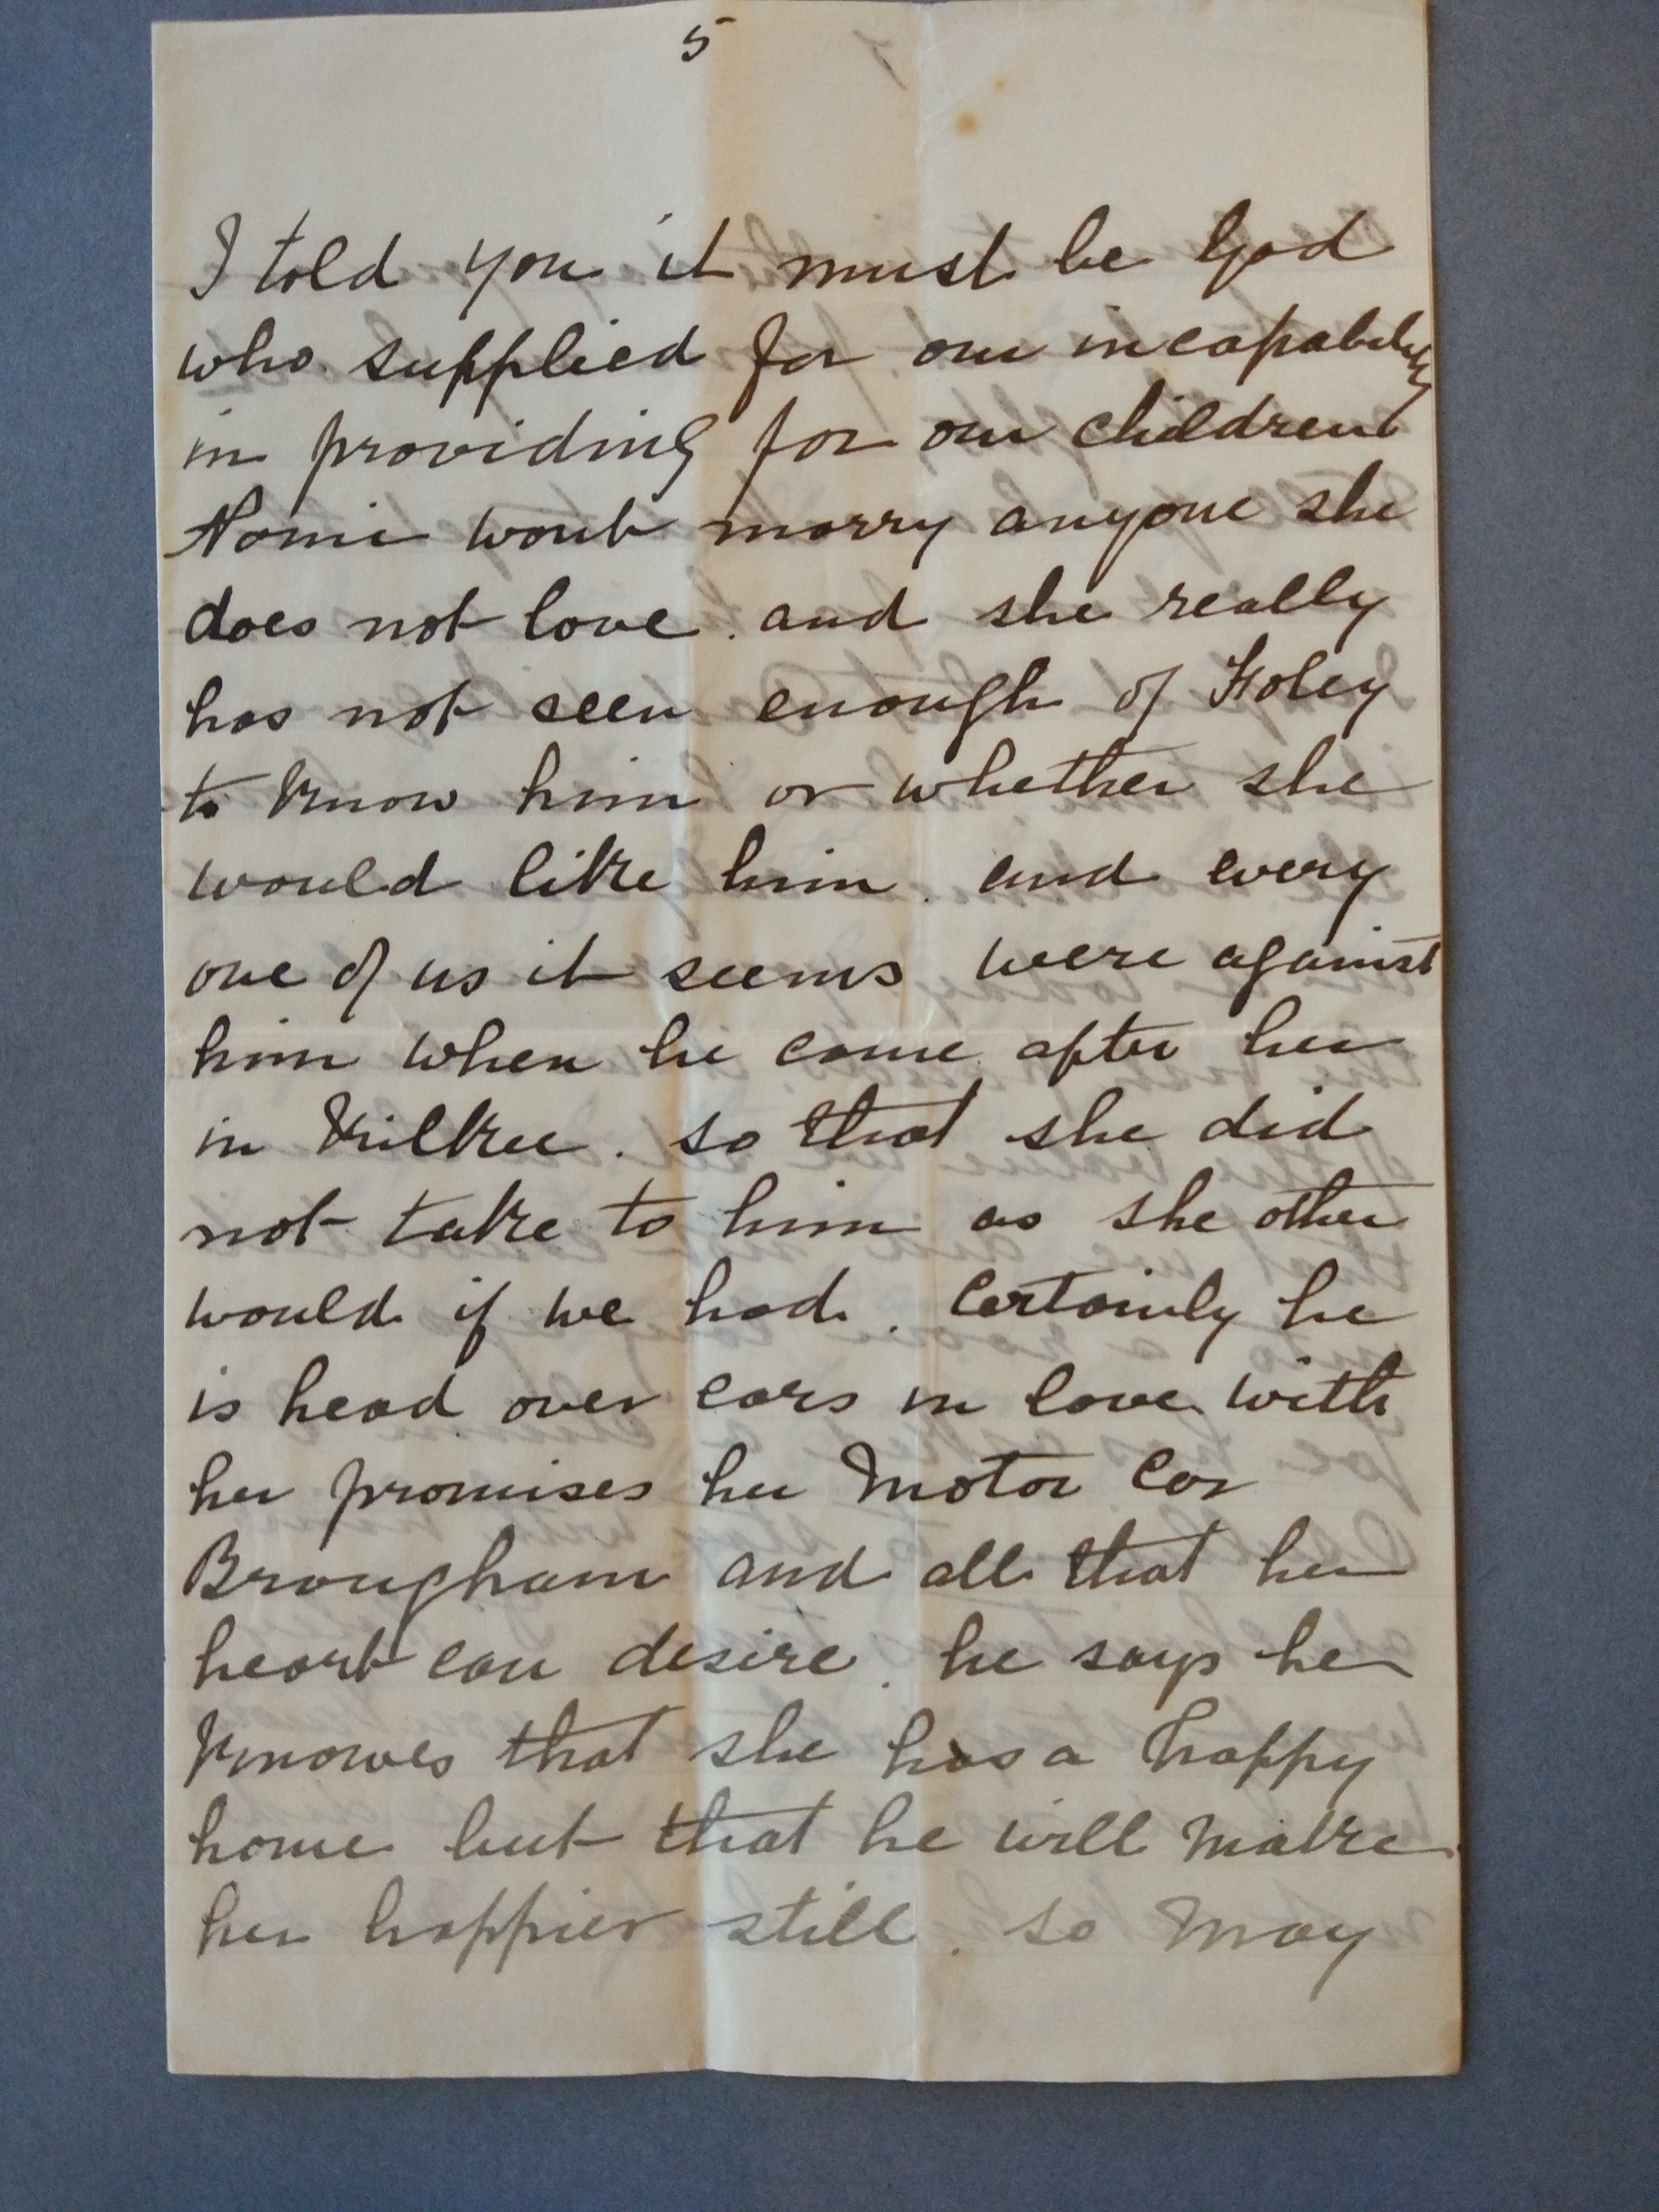 5
I told you it must be God
who supplied for our incapability
in providing for our children
Nomie wont marry anyone she
does not love. and she really
has not seen enough of Foley
to know him or whether she
would like him. and every
one of us it seems were against
him when he came after her
in Kilkee. so that she did
not take to him as she other
would if we had. Certainly he
is head over ears in love with
her promises her Motor Car
Brougham and all that her
heart can desire. he says he
Knowes that she has a happy
home but that he will make
her happier still. so may